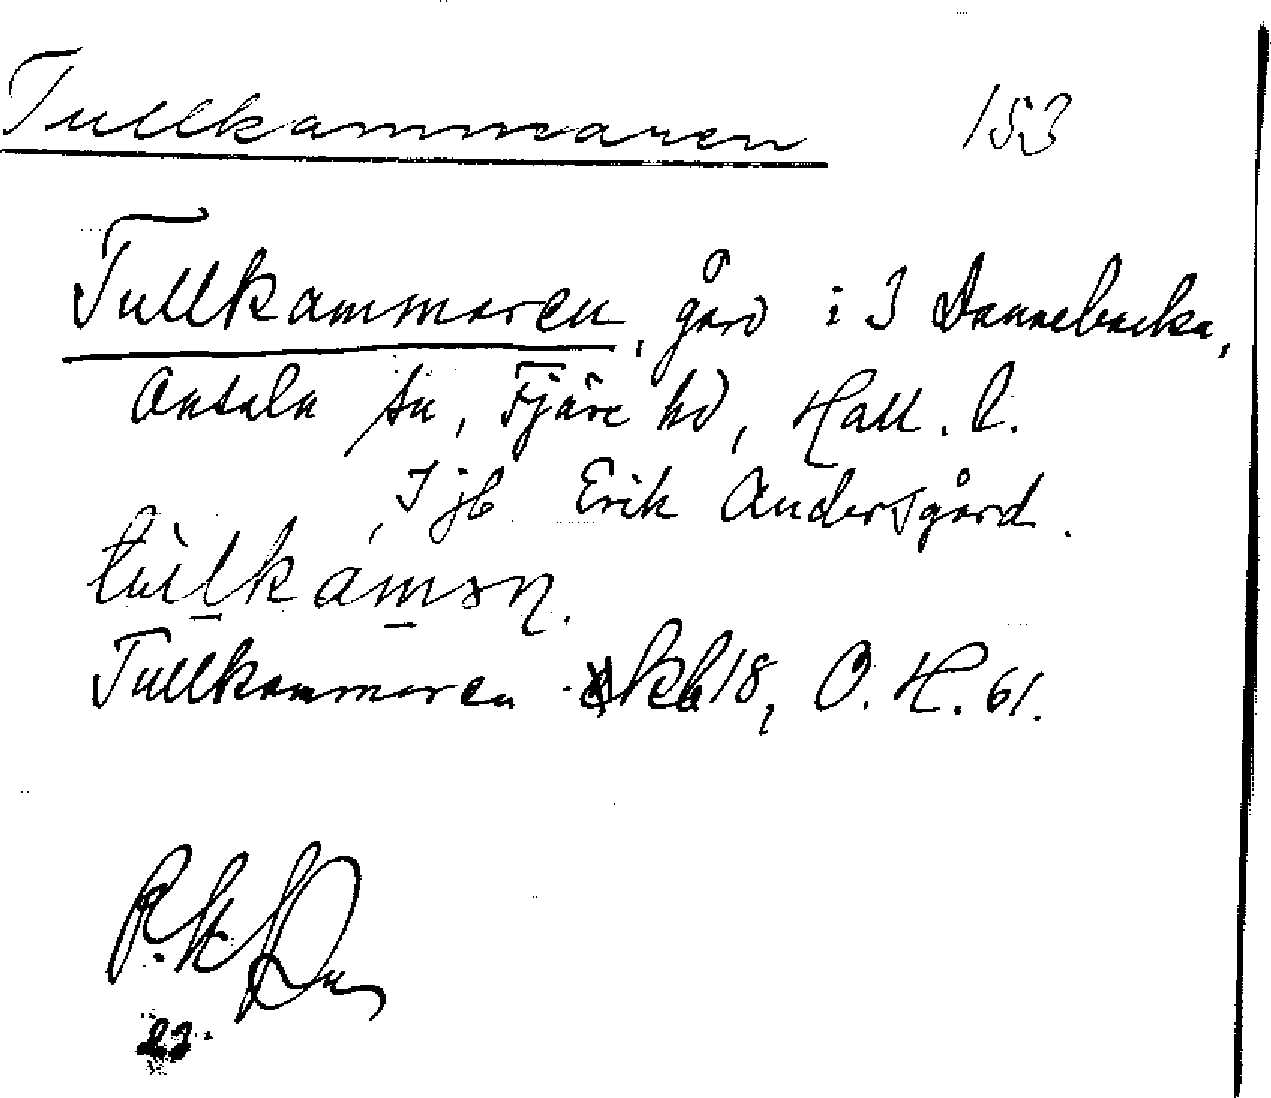 Tullkammaren 153
Tullkammaren, gård i 3 Dannebacka,
Onsala sn, Fjäre hd, Hall. l.
I jb Erik Andersgård.
Tullkammaren kb 18, O. H. 61.
23.